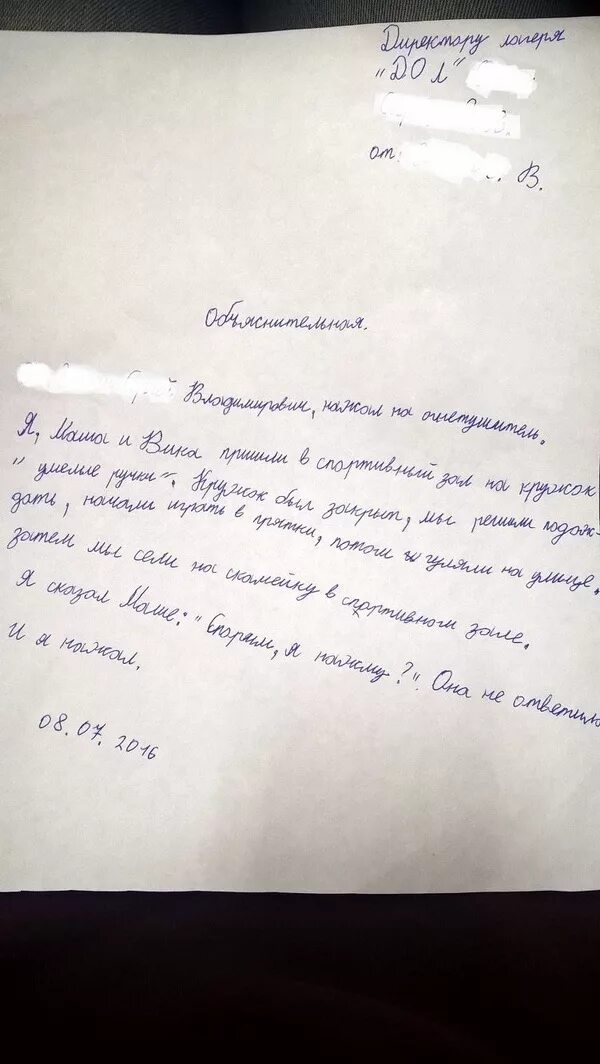 Директору лагеря
"ДОЛ"
от
В.
Объяснительная.
Владимирович, нажал на огнетушитель.
Я, Маша и Вика пришли в спортивный зал на кружок
"умелые ручки". Кружок был закрыт, мы решили подож-
дать, начали играть в прятки, потом гуляли на улице,
затем мы сели на скамейку в спортивном зале.
Я сказал Маше: "Спорим, я нажму?". Она не ответила
И я нажал.
08.07.2016